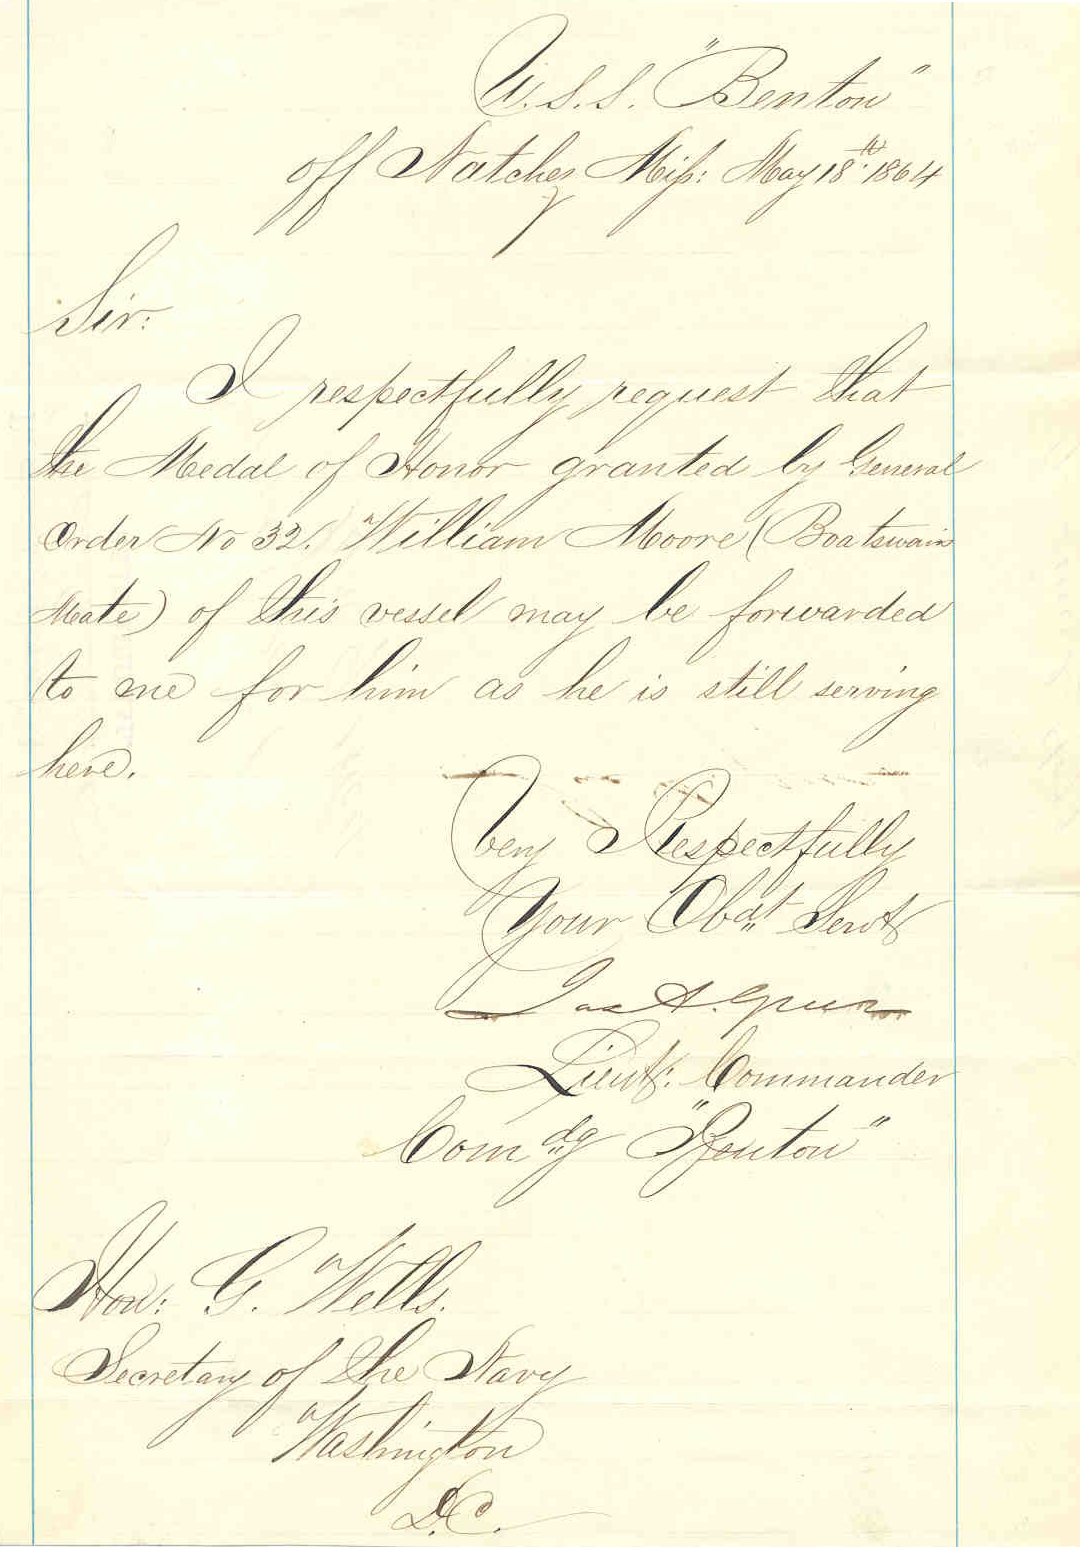 U.S.S. "Benton"
off Natchez Miss: May 18th 1864
Sir:
I respectfully request that
the Medal of Honor granted by General
Order No 32. William Moore (Boatswain
Mate) of this vessel may be forwarded
to me for him as he is still serving
here.
Very Respectfully
Your Obdt Servt
Jas A. Greer
Lieut: Commander
Comdg "Benton"
Hon: G. Wells.
Secretary of the Navy
Washington
D.C.